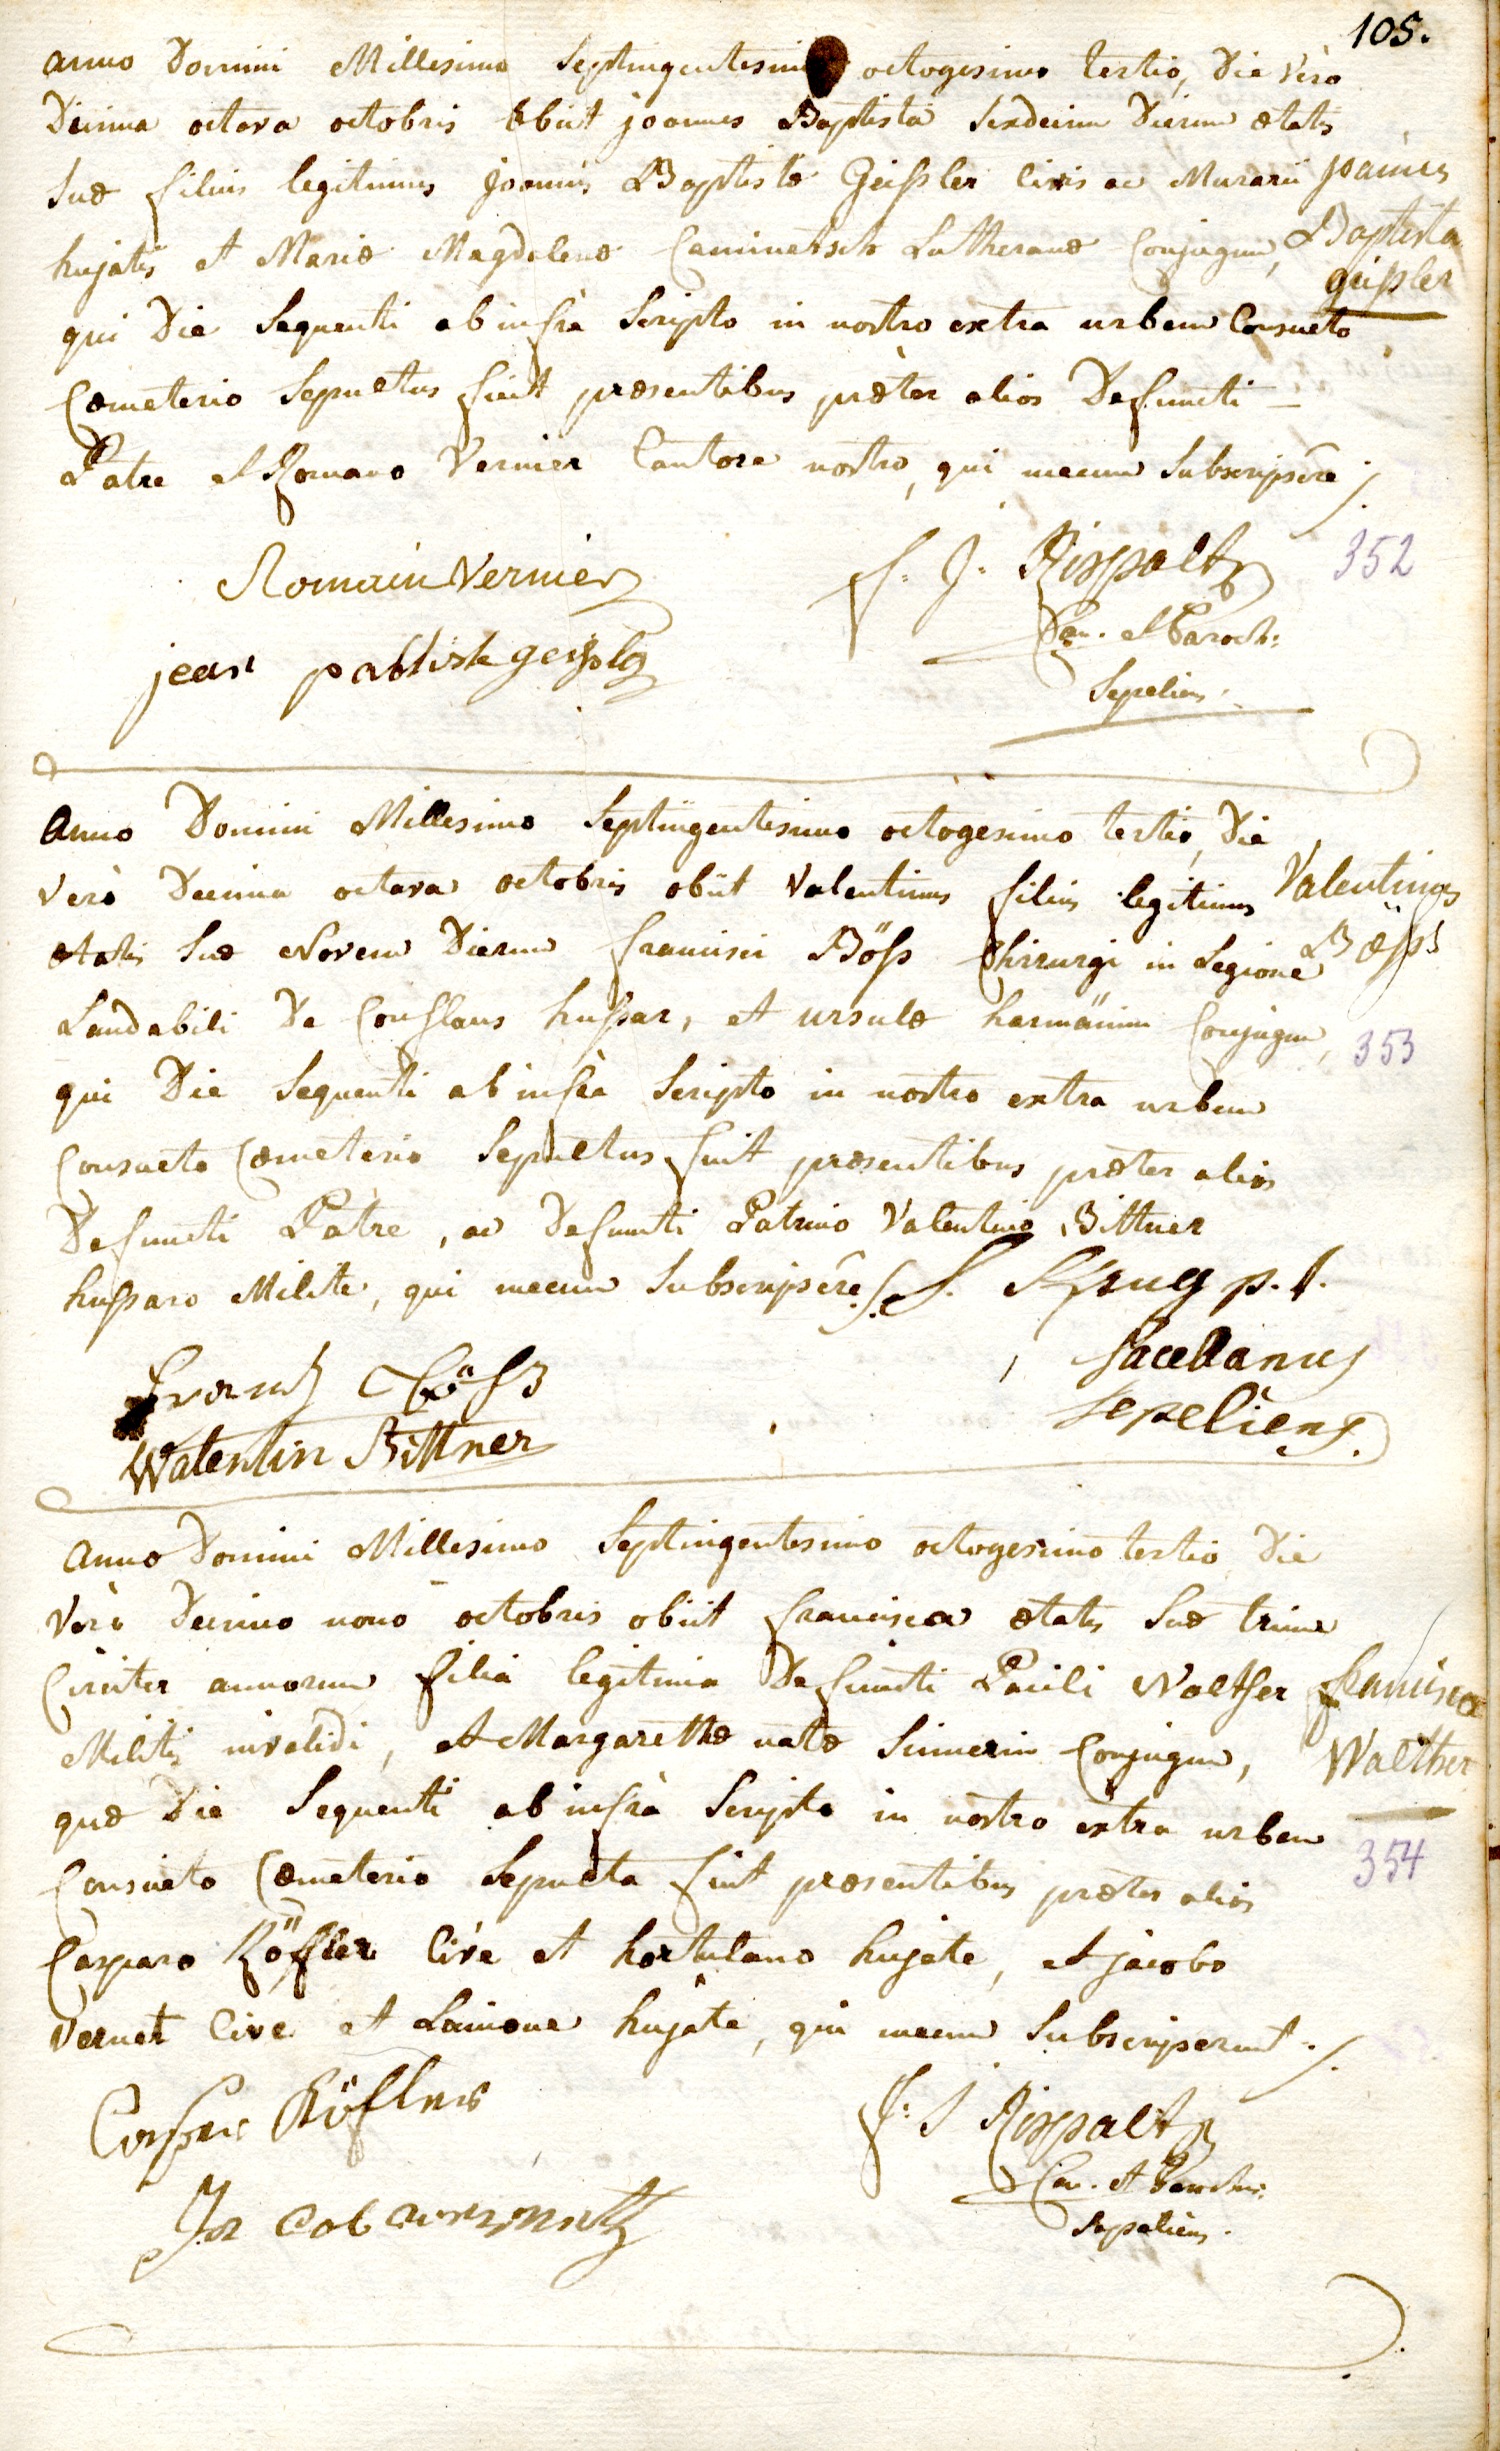 105.
anno Domini Millesimo Septingentesimo octogesimo tertio, Die verò
Decima octava octobris obiit joannes Baptista sexdecim Dierum ætatis
suæ filius legitimus joannis Baptistæ Geissler Civis ac Murarii
hujatis et Mariæ Magdalenæ Caminetsch Lutheranæ Conjugum,
joannes
Baptista
geissler
qui Die sequenti ab infrà scripto in nostro extra urbem Consueto
Cœmeterio sepultus fuit præsentibus præter alios Defuncti
Patre et Romano Vernier Cantore nostro, qui mecum subscripsêre ./.
352
Romain Vernier
F. J. Rispalt
Can. et Paroch:
jean pabtist geissler
sepeliens.
Anno Domini Millesimo Septingentesimo octogesimo tertio, Die
verò Decima octava octobris obiit Valentinus filius legitimus
Valentinus
Böss
ætatis suæ Novem Dierum francisci Böss Chirurgi in Legione
Laudabili De Conflans hussar, et ursulæ harmänin Conjugum,
353
qui Die sequenti ab infrà scripto in nostro extra urbem
Consueto Cœmeterio sepultus fuit præsentibus præter alios
Defuncti Patre, ac Defuncti Patrino Valentino Bittner
hussaro Milite, qui mecum subscripsêre ./.
S. Krug p. t.
sacellanus
sepeliens.
Frantz Böss
Walentin Bittner
Anno Domini Millesimo Septingentesimo octogesimo tertio Die
verò Decimo nono octobris obiit francisca ætatis suæ trium
Circiter annorum filia legitima Defuncti Pauli Walther
francisca
Walther
Militis invalidi, et Margarethæ natæ Simmerin Conjugum,
quæ Die sequenti ab infrà scripto in nostro extra urben
354
Consueto Cœmeterio sepulta fuit præsentibus præter alios
Casparo Röffler Cive et hortulano hujate, et jacobo
Vernet Cive et Lanione hujate, qui mecum subscripserunt ./.
Casper Röfler
F. J Rispalt
Can. et Parochus
sepeliens.